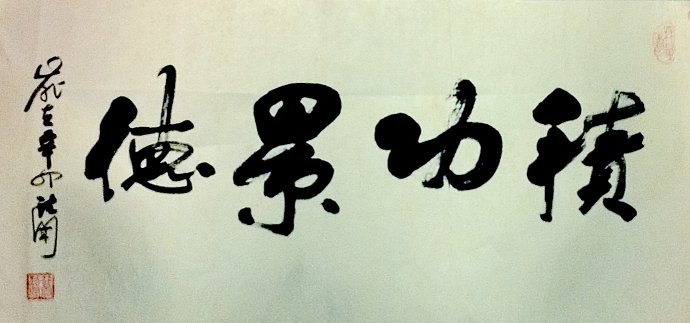 積功累德
歲在辛卯